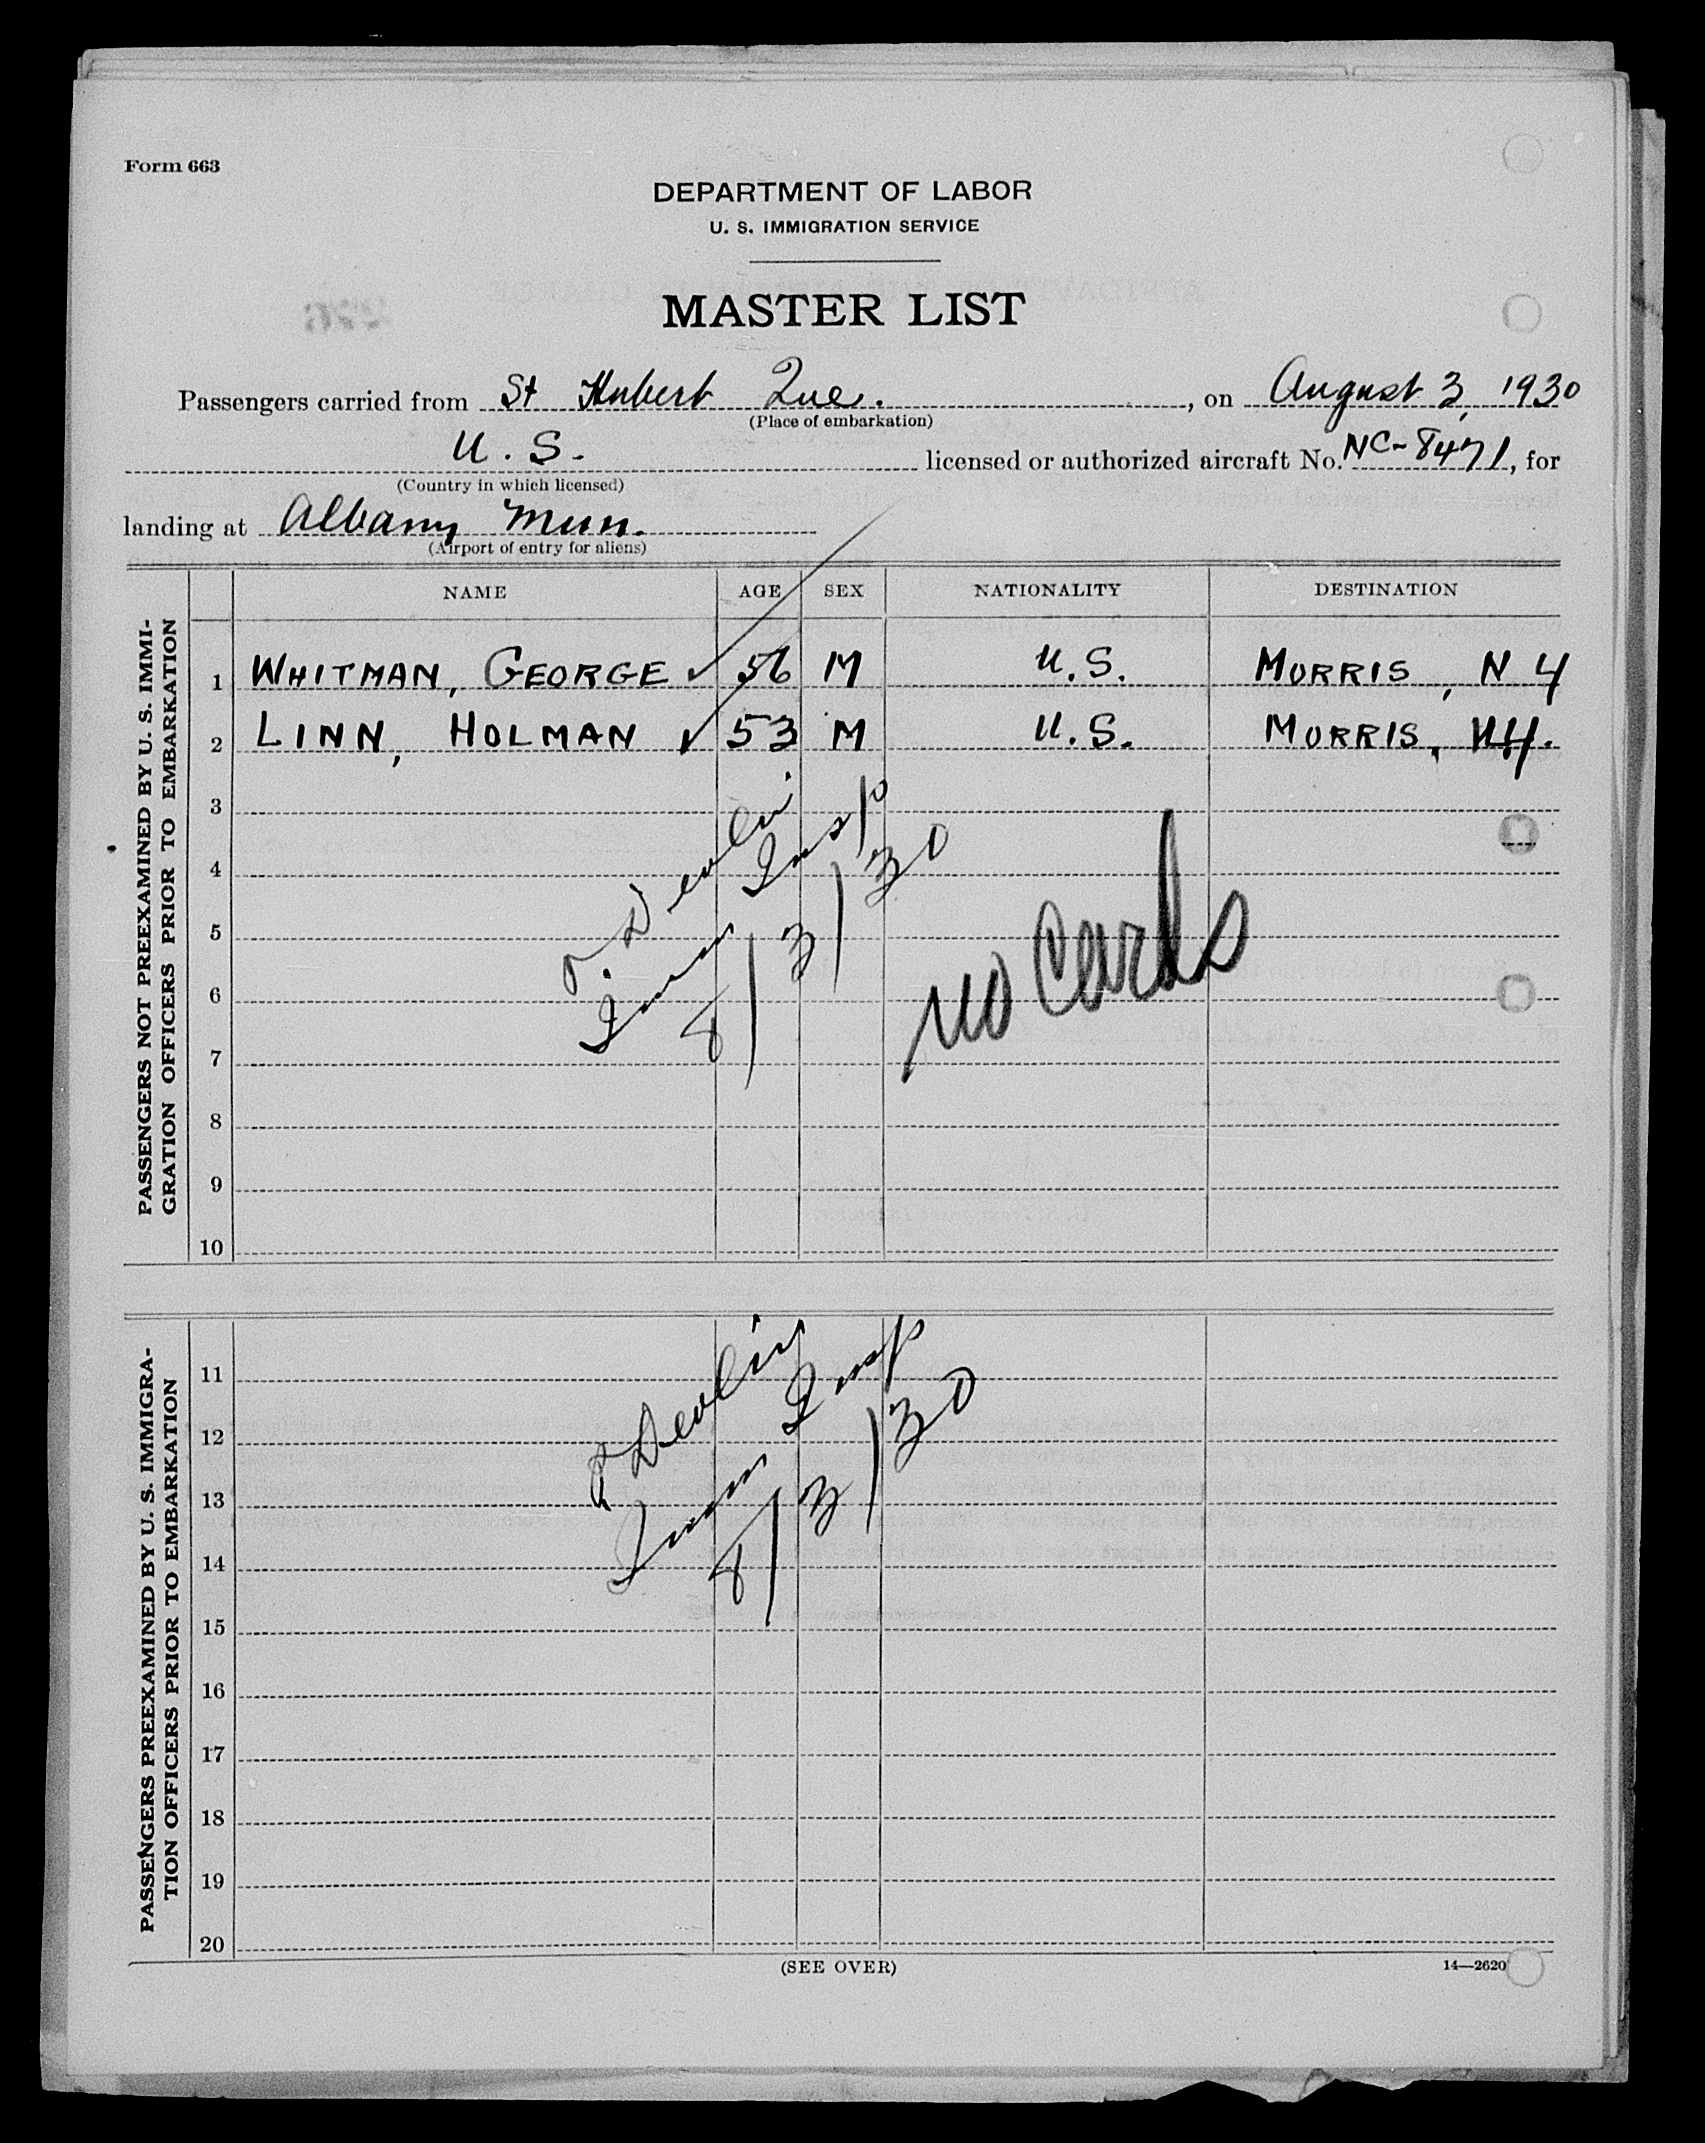 Form 663
DEPARTMENT OF LABOR
U. S. IMMIGRATION SERVICE
MASTER LIST
Passengers carried from St Hubert Que. , on August 3, 1930
(Place of embarkation)
U. S. licensed or authorized aircraft No. NC-8471, for
(Country in which licensed)
landing at Albany Mun.
(Airport of entry for aliens)
NAME AGE SEX NATIONALITY DESTINATION
PASSENGERS NOT PREEXAMINED BY U. S. IMMI-
GRATION OFFICERS PRIOR TO EMBARKATION
1 WHITMAN, GEORGE ✓ 56 M U.S. MORRIS, N Y
2 LINN, HOLMAN ✓ 53 M U.S. MORRIS, NY.
3
4
5
6
7
8
9
10
Devlin
Imm Insp
8/3/30
no cards
PASSENGERS PREEXAMINED BY U. S. IMMIGRA-
TION OFFICERS PRIOR TO EMBARKATION
11
12
13
14
15
16
17
18
19
20
Devlin
Imm Insp
8/3/30
(SEE OVER)
14—2620